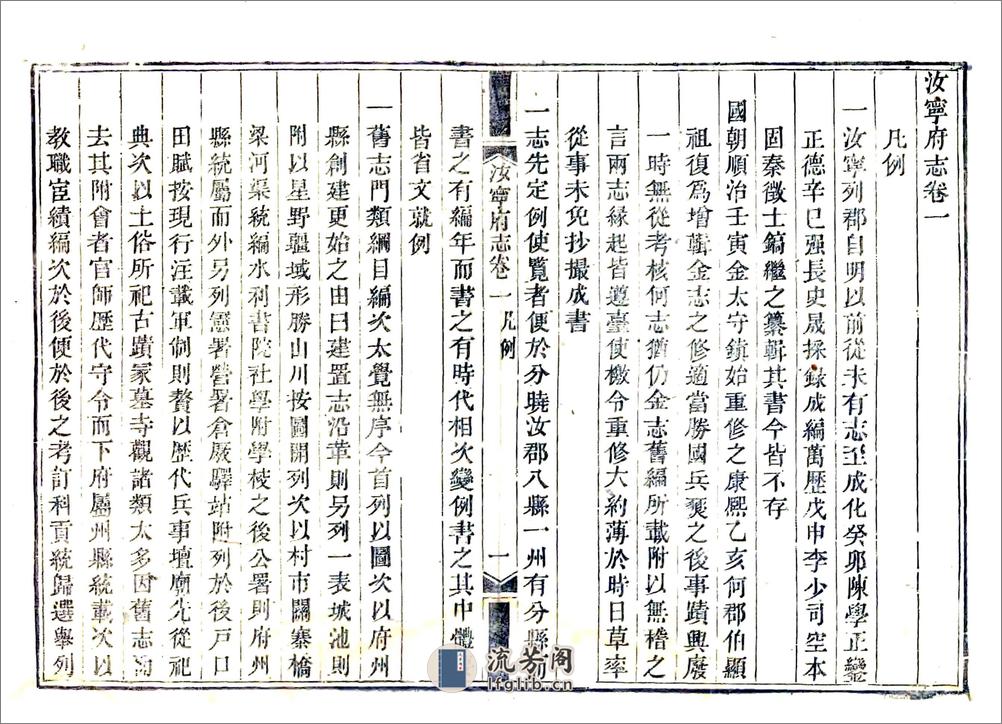 汝寧府志卷一
凡例
一汝寧列郡自明以前從未有志至成化癸卯陳學正鑾
正德辛巳强長史晟採錄成編萬歷戊申李少司空本
固秦徵士鎬繼之纂輯其書今皆不存
國朝順治壬寅金太守鎮始重修之康熙乙亥何郡伯顯
祖復爲增輯金志之修適當勝國兵燹之後事蹟興廢
一時無從考核何志猶仍金志舊編所載附以無稽之
言兩志緣起皆遵臺使檄令重修大約薄於時日草率
從事未免抄撮成書
一志先定例使覽者便於分曉汝郡八縣一州有分縣而
汝寧府志卷一 凡例 一
書之有編年而書之有時代相次變例書之其中體
皆省文就例
一舊志門類綱目編次太覺無序今首列以圖次以府州
縣創建更始之由曰建置志沿革則另列一表城池則
附以星野疆域形勝山川按圖開列次以村市關寨橋
梁河渠統編水利書院社學附學校之後公署則府州
縣統屬而外另列憲署營署倉廒驛站附列於後戸口
田賦按現行注載軍制則贅以歷代兵事壇廟先從祀
典次以土俗所祀古蹟冢墓寺觀諸類太多因舊志而
去其附會者官師歷代守令而下府屬州縣統載次以
教職宦績編次於後便於後之考訂科貢統歸選舉列
流芳阁
lfglib.cn